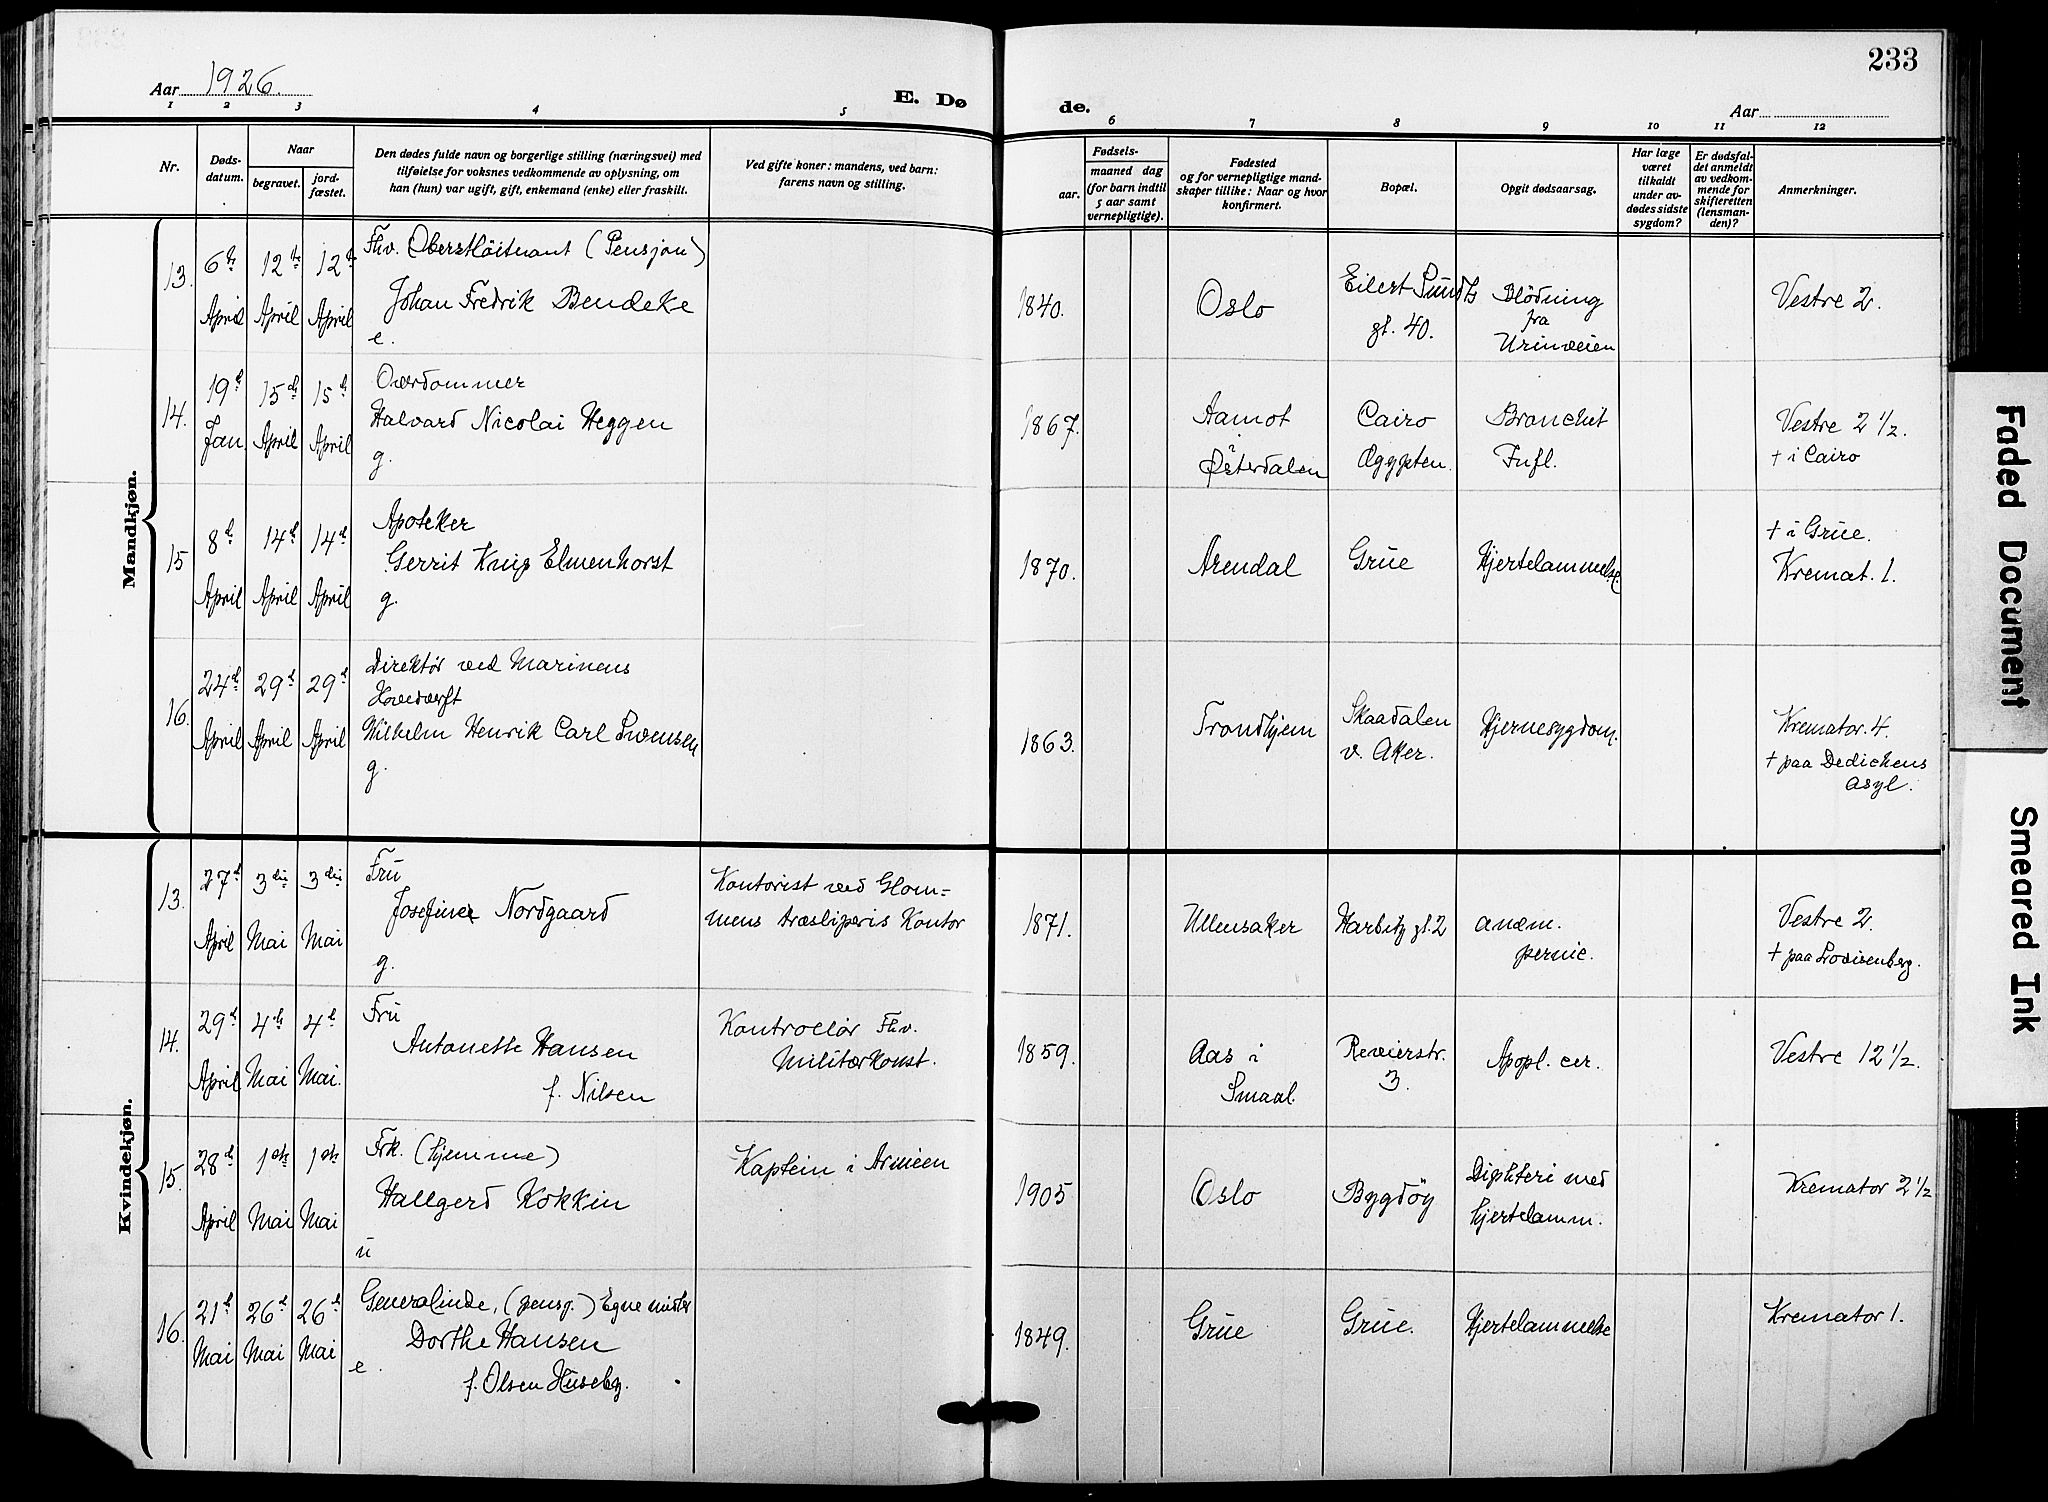 233
Aar 1926.
E. Dø
de.
Aar
1 2 3 4 5 6 7 8 9 10 11 12
Nr.
Døds-
datum.
Naar
begravet.
jord-
fæstet.
Den dødes fulde navn og borgerlige stilling (næringsvei) med
tilføielse for voksnes vedkommende av oplysning, om
han (hun) var ugift, gift, enkemand (enke) eller fraskilt.
Ved gifte koner: mandens, ved barn:
farens navn og stilling.
Fødsels-
aar.
maaned dag
(for barn indtil
5 aar samt
vernepligtige).
Fødested
og for vernepligtige mand-
skaper tillike: Naar og hvor
konfirmert.
Bopæl.
Opgit dødsaarsag.
Har læge
været
tilkaldt
under av-
dødes sidste
sygdom?
Er dødsfal-
det anmeldt
av vedkom-
mende for
skifteretten
(lensman-
den)?
Anmerkninger.
Mandkjøn.
13.
6te April
12te April
12te April
Fhv. Oberstlöitnant (Pensjon)
Johan Fredrik Bendeke
e.
1840.
Oslo
Eilert Sundts
gt. 40.
Blödning
fra
Urinveien
Vestre 2.
14.
19d Jan.
15de April
15d April
Overdommer
Halvard Nicolai Heggen
g.
1867.
Aamot
i
Østerdalen
Cairo
Ægypten.
Bronchit
Infl.
Vestre 2 1/2.
† i Cairo
15
8d April
14d April
14d April
Apoteker
Gerrit Knip Elmenhorst
g.
1870.
Arendal
Grue
Hjertelammelse
† i Grue.
Kremat. 1.
16.
24d April
29d April
29d April
Direktør ved Marinens
Hovedverft
Wilhelm Henrik Carl Svensen
g.
1863.
Trondhjem
Skaadalen
v. Aker.
Hjernesygdom.
Kremator. 4.
† paa Dedichens
Asyl.
Kvindekjøn.
13.
27d April
3die Mai
3die Mai
Fru
Josefine Nordgaard
g.
Kontorist ved Glom-
mens træsliperis Kontor
1871.
Ullensaker
Harbitz gt. 2
Anæm.
pernic.
Vestre 2.
† paa Lovisenberg.
14.
29d April
4de Mai
4d Mai.
Fru
Antonette Hansen
f. Nilsen
Kontrollør Fhv.
Militærkonst.
1859.
Aas i
Smaal.
Revierstr.
3.
Apopl. cer.
Vestre 12 1/2.
15.
28d April
1ste Mai
1ste Mai
Frk. (hjemme)
Hallgerd Kokkin
u
Kaptein i Armeen
1905
Oslo
Bygdöy
Diphteri med
hjertelamm.
Kremator 2 1/2
16.
21d Mai
26d Mai
26d Mai
Generalinde, (pensj.) Egne midler
Dorthe Hansen
e.
f. Olsen Huseby.
1849.
Grue
Grue.
Hjertelammelse
Kremator 1.
Faded Document
Smeared Ink